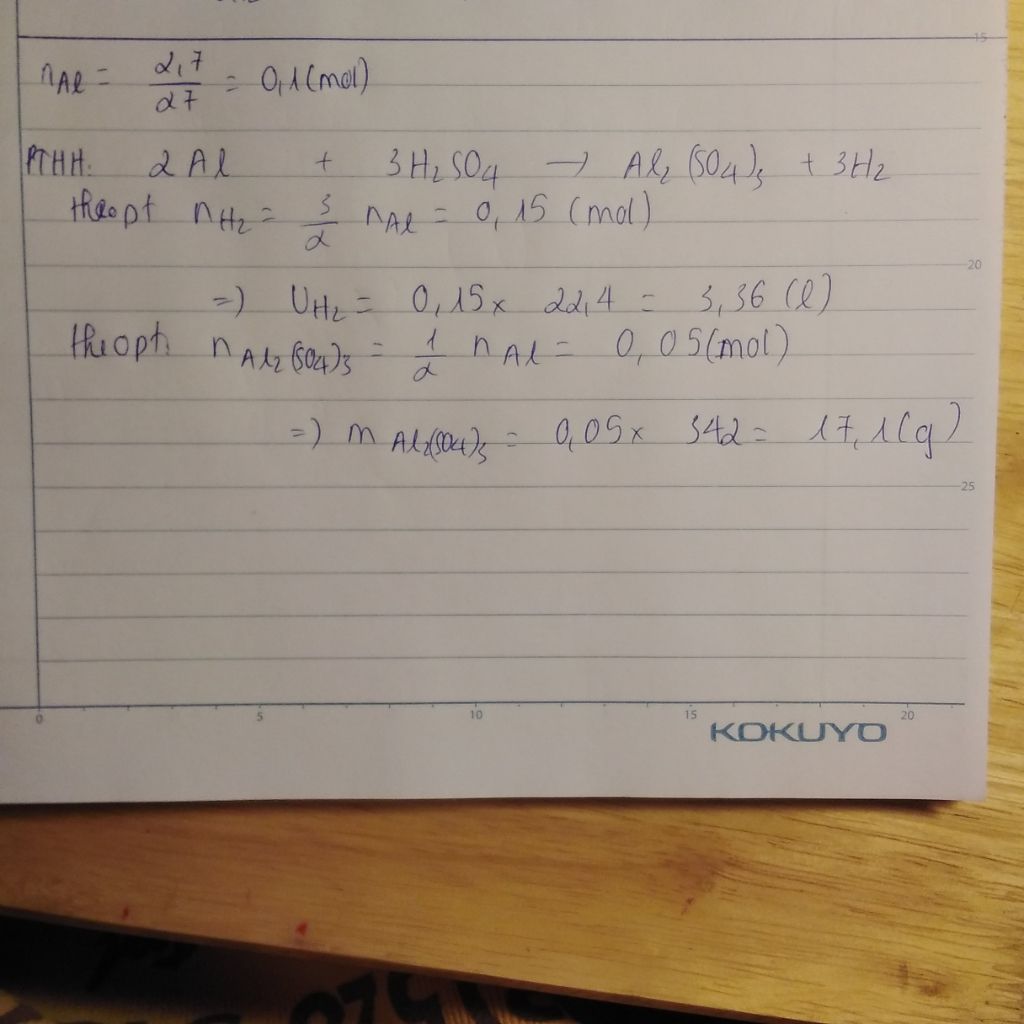 nAl = 2,7/27 = 0,1 (mol)
15
PTHH: 2Al + 3H2SO4 → Al2(SO4)3 + 3H2
theopt nH2 = 3/2 nAl = 0,15 (mol)
20
=) VH2 = 0,15 x 22,4 = 3,36 (l)
theopt: nAl2(SO4)3 = 1/2 nAl = 0,05 (mol)
=) mAl2(SO4)3 = 0,05 x 342 = 17,1 (g)
25
0 5 10 15 20
KOKUYO